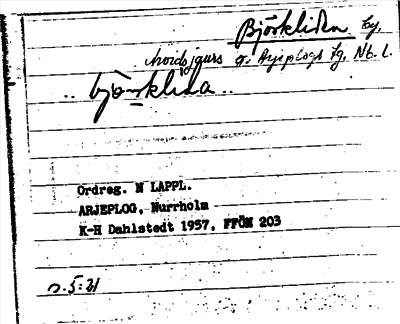 Björklida by,
Arvidsjaurs o. Arjeplogs tg, Nb. l.
.. björklida ..
Ordreg. N LAPPL.
ARJEPLOG, Nurrholm
K-H Dahlstedt 1957, FFÖN 203
D.5:21